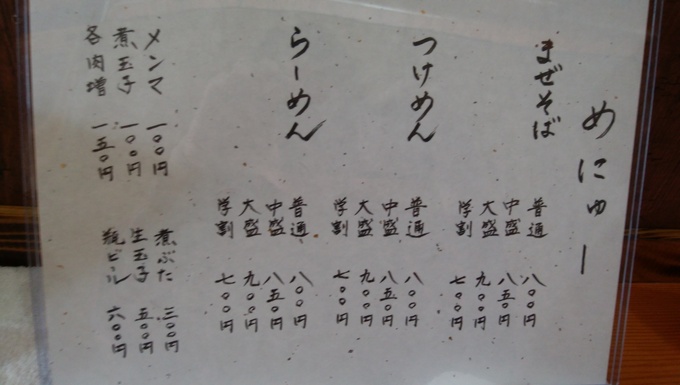 めにゅー
まぜそば
普通 八〇〇円
中盛 八五〇円
大盛 九〇〇円
学割 七〇〇円
つけめん
普通 八〇〇円
中盛 八五〇円
大盛 九〇〇円
学割 七〇〇円
らーめん
普通 八〇〇円
中盛 八五〇円
大盛 九〇〇円
学割 七〇〇円
メンマ 一〇〇円
煮玉子 一〇〇円
各肉増 一五〇円
煮ぶた 三〇〇円
生玉子 五〇円
瓶ビール 六〇〇円